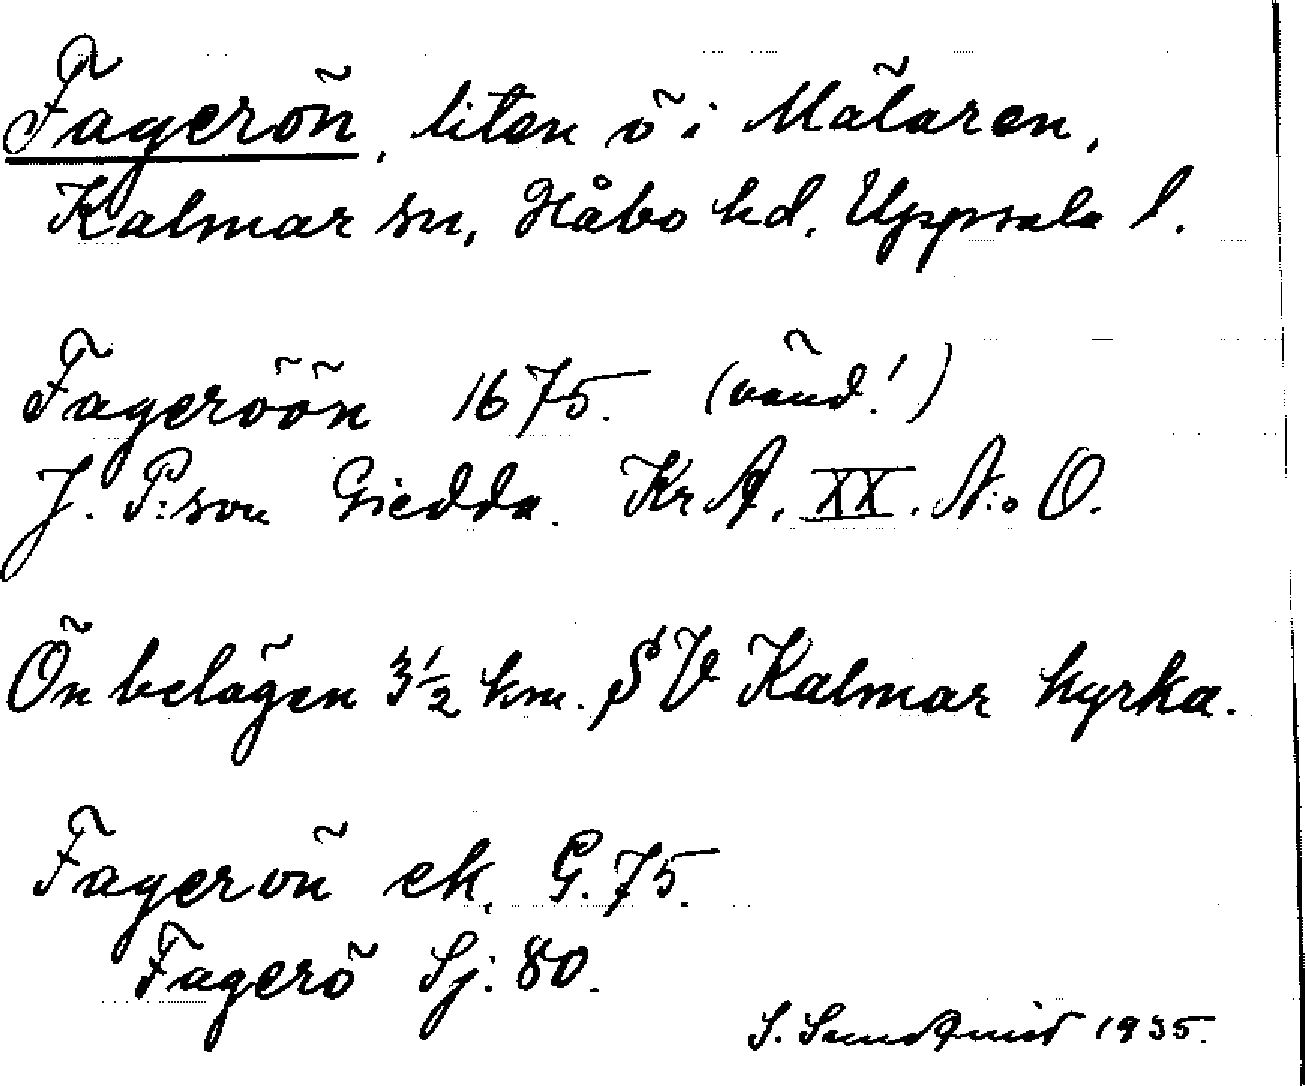 Fagerön, liten ö i Mälaren,
Kalmar sn, Håbo hd, Uppsala l.
Fageröön 1675. (vänd!)
J. P:son Giedda. Kr A. XX. N:o O.
Ön belägen 3½ km. SV Kalmar kyrka.
Fagerön ek. G. 75.
Fagerö Sj: 80.
S. Sundqvist 1935.